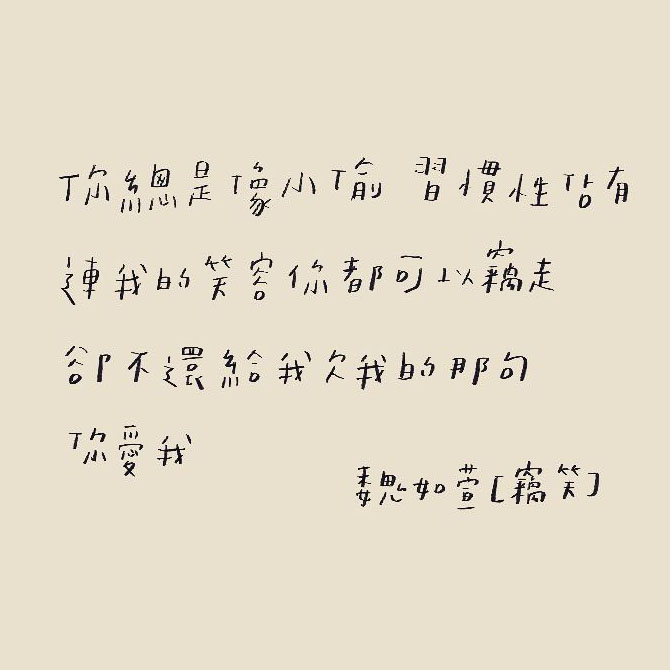 你總是像小偷 習慣性佔有
連我的笑容你都可以竊走
卻不還給我欠我的那句
你愛我
魏如萱[竊笑]